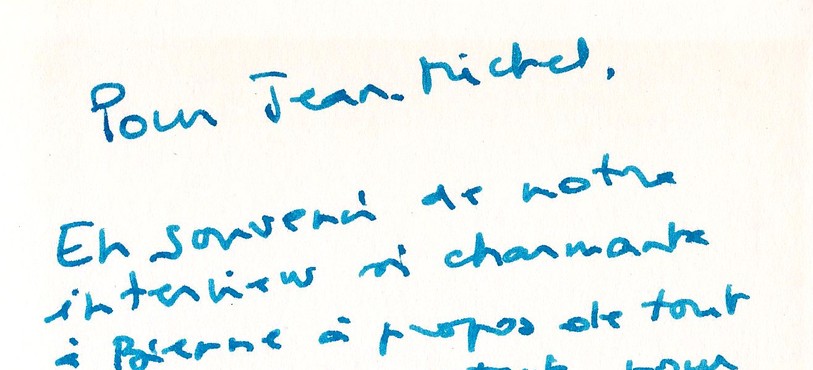 Pour Jean-Michel,
En souvenir de notre
interview si charmante
à Bienne à propos de tout
tout pour